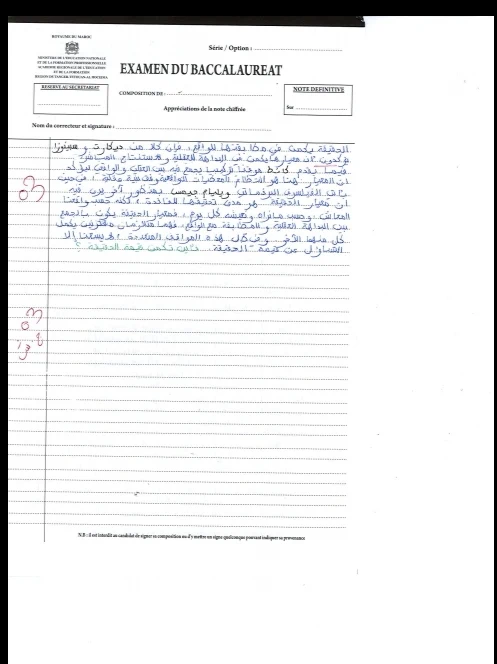 ROYAUME DU MAROC
MINISTERE DE L'EDUCATION NATIONALE
ET DE LA FORMATION PROFESSIONNELLE
ACADEMIE REGIONALE DE L'EDUCATION
ET DE LA FORMATION
REGION DE TANGER-TETOUAN-AL HOCEIMA
RESERVE AU SECRETARIAT
Série / Option :
EXAMEN DU BACCALAUREAT
COMPOSITION DE :
Appréciations de la note chiffrée
NOTE DEFINITIVE
Sur
Nom du correcteur et signature :
الحقيقة يكمن في مطابقتها للواقع، فإن كلا من ديكارت و سبينوزا
يؤكدون أن معيارها يكمن في البداهة العقلية و الاستنتاج
فيما يقدم كانط موقفا تركيبيا يجمع فيه بين العقل والواقع ليؤكد
ان المعيار هنا هو انتظام المعطيات الواقعية في حين
الفيلسوف البرغماتي ويليام جيمس آخر يرى فيه
ان معيار الحقيقة هو مدى تحقيقها للفائدة، لكنه حسب واقعنا
المعاش، وحسب مانراه ونعيشه كل يوم، فمعيار الحقيقة يكون بالجمع
بين البداهة العقلية والمطابقة مع الواقع، فهما يكمل
كل منهما الآخر، وفي كل هذه المواقف لا يسعنا إلا
التساؤل عن قيمة الحقيقة، فأين تكمن قيمة الحقيقة؟
03
03
N.B : il est interdit au candidat de signer sa composition ou d'y mettre un signe quelconque pouvant indiquer sa provenance